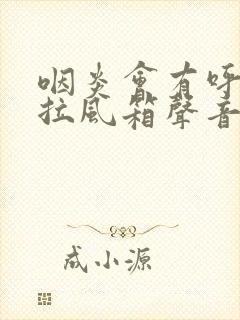 咽炎會有呼
拉風箱聲音
成小源